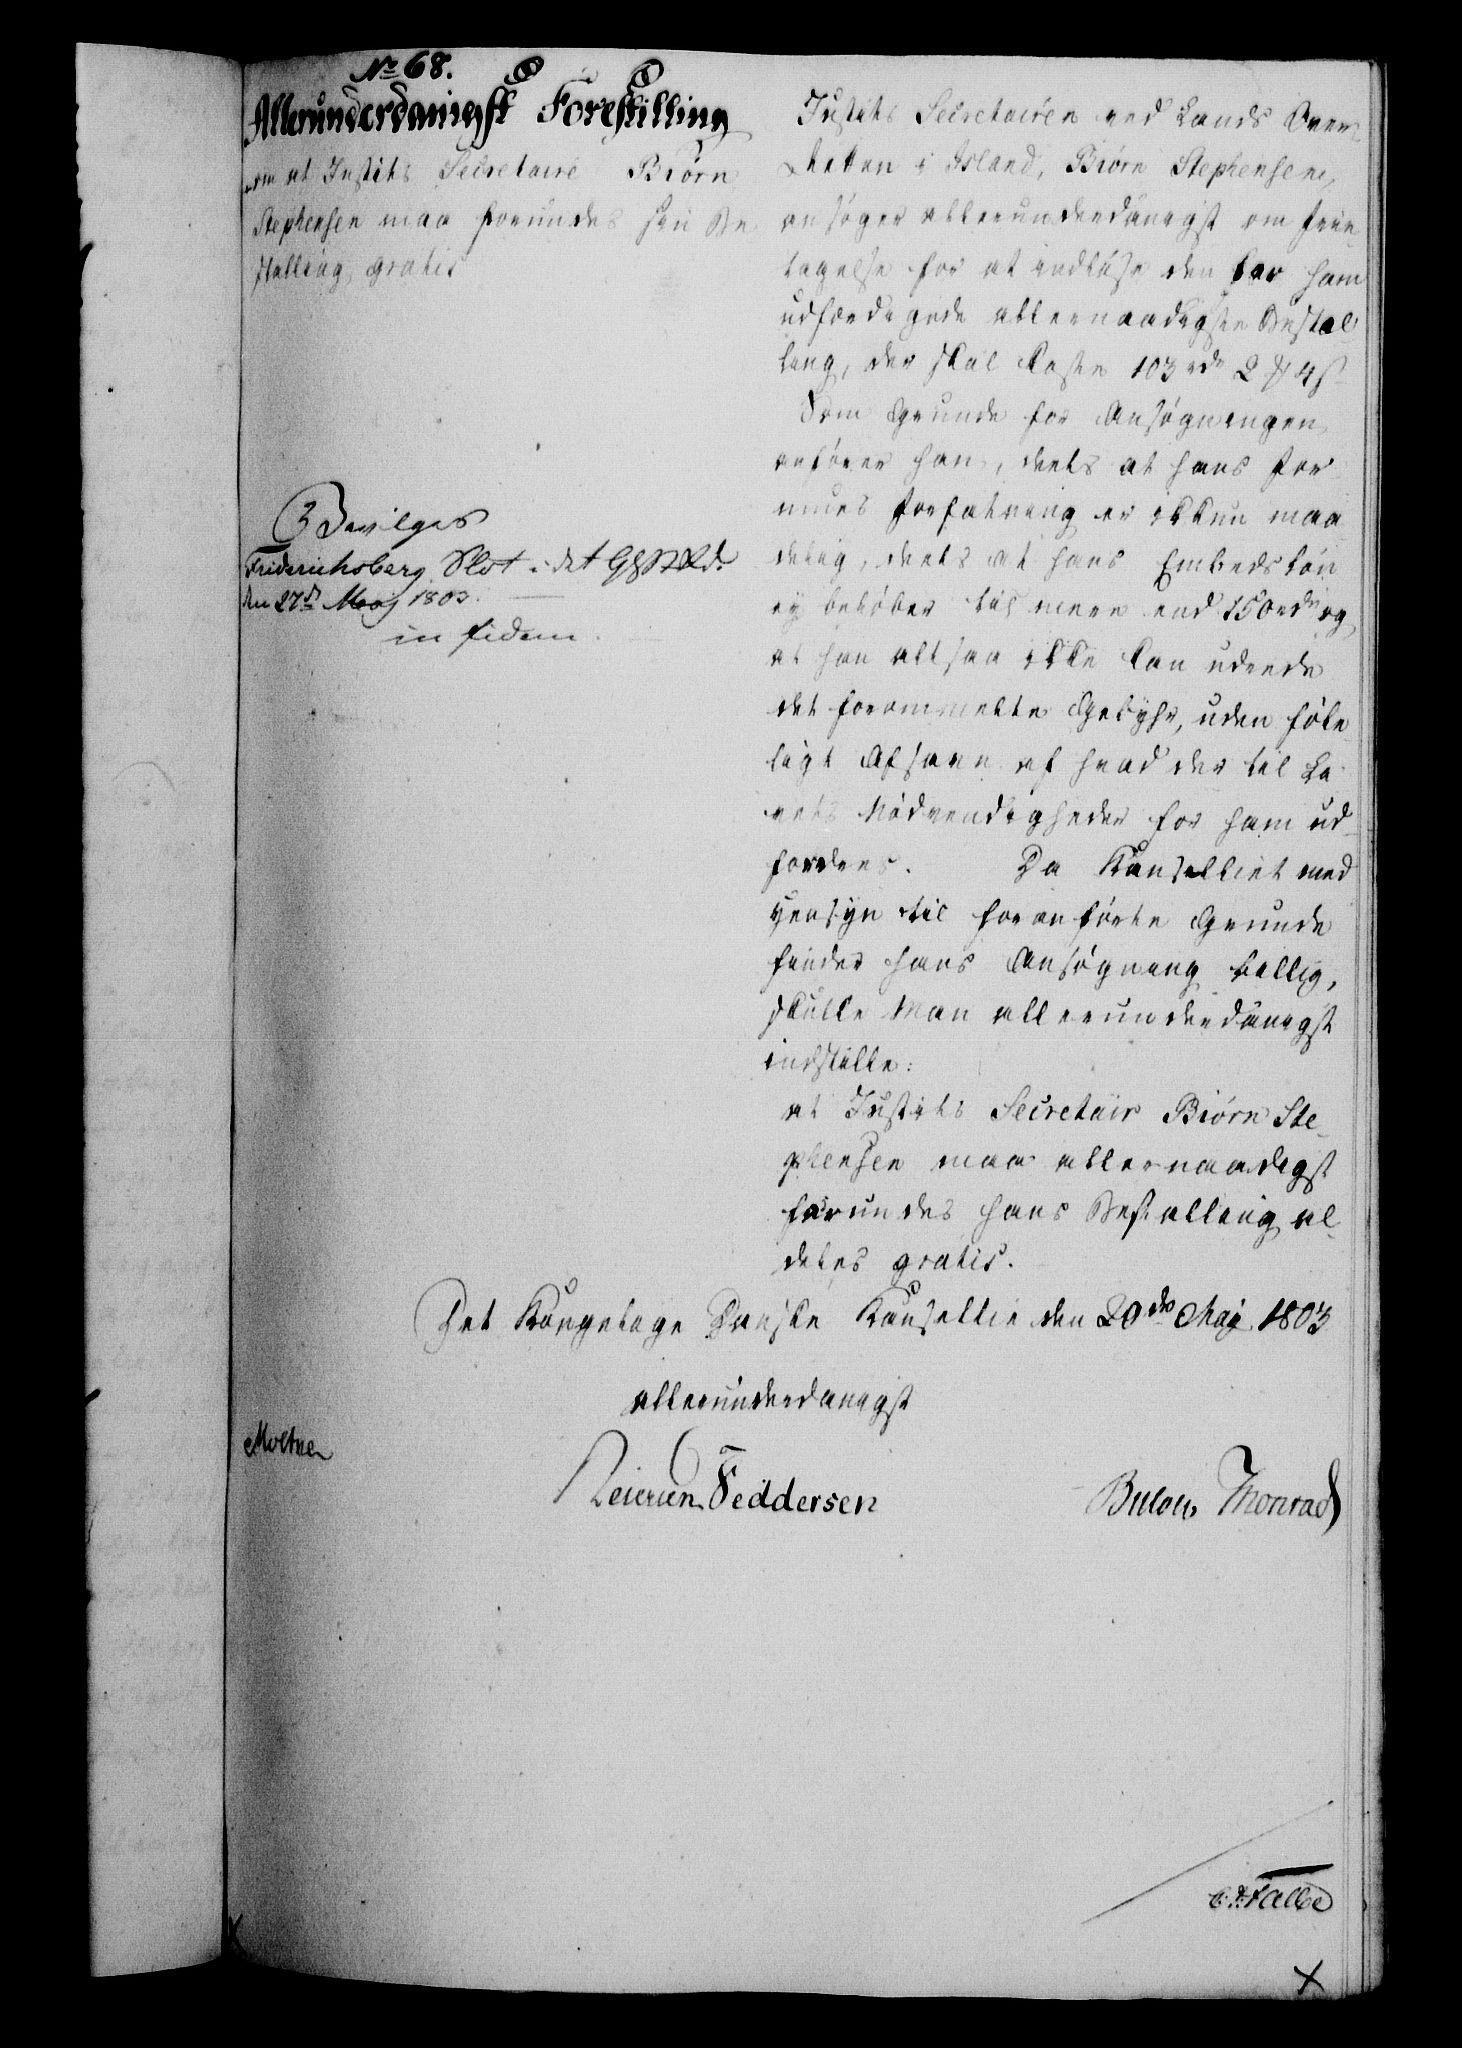 No 68.
Allerunderdanigst Forestilling
om at Justits Secretaire Biörn
Stephensen maa forundes sin Be
stalling gratis
Bevilges
Friderichsberg Slot i det
den 27de Maj 1803.
in fidem.
Justits Secretairen ved Lands Over-
Retten i Island, Biörn Stephensen,
ansøger allerunderdanigst om frie-
tagelse for at indløse den for ham
udfærdigede allernaadigste Bestal
ling, der skal koste 103 rdr 2 ℔ 4 s
Som Grunde for Ansøgningen
anfører han, deels at hans For
mues Forfatning er ikkun maa
delig, deels at hans Embedsløn
ej beløber til meere end 150 rdr og
at han altsaa ikke kan udrede
det forommelte Gebyhr, uden føle
ligt Afsavn af hvad der til Li
vets Nødvendigheder for ham ud-
fordres. Da Kanselliet med
Hensyn til foranførte Grunde
finder hans Ansøgning billig,
skulle Man allerunderdanigst
indstille:
at Justits Secretair Biörn Ste-
phensen maa allernaadigst
forundes hans Bestalling al-
deles gratis.
Det Kongelige Danske Kansellie den 20de Maj 1803
allerunderdanigst
Moltke
Reiersen Feddersen
Bülow Monrad
Falbe